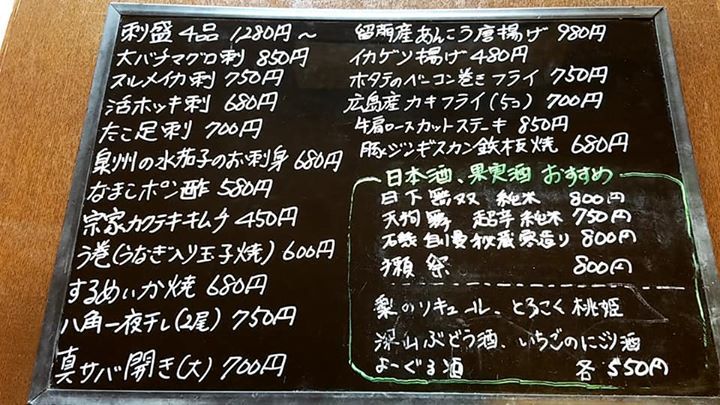 刺盛4品 1280円~
大バチマグロ刺 850円
スルメイカ刺 750円
活ホッキ刺 680円
たこ足刺 700円
泉州の水茄子のお刺身 680円
なまこポン酢 580円
宗家カクテキキムチ 450円
う巻(うなぎ入り玉子焼) 600円
するめいか焼 680円
八角一夜干し(2尾) 750円
真サバ開き(大) 700円
留萌産あんこう唐揚げ 980円
イカゲソ揚げ 480円
ホタテのベーコン巻きフライ 750円
広島産カキフライ(5コ) 700円
牛肩ロースカットステーキ 850円
豚ジンギスカン鉄板焼 680円
日本酒、果実酒 おすすめ
日下無双 純米 800円
天狗舞 超辛純米 750円
石鎚 自慢秘蔵寒造り 800円
獺祭 800円
梨のリキュール、とろこく桃姫
深山ぶどう酒、いちごのにごり酒
よーぐる酒 各550円